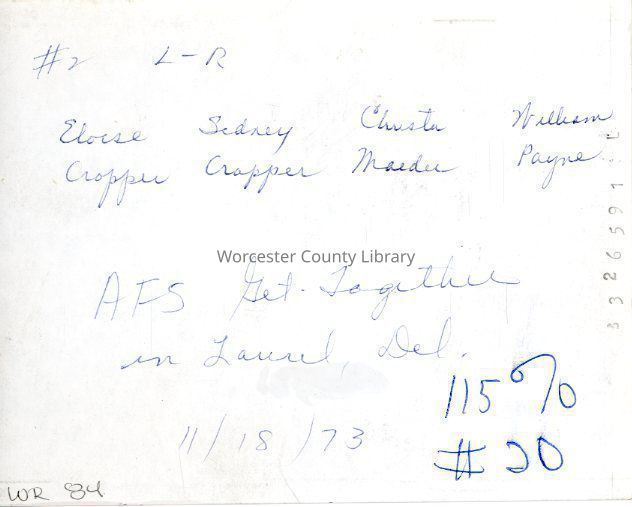 #2 L-R
Eloise Sedney Christa William
Cropper Cropper Maeder Payne
Worcester County Library
AFS Get-Together
in Laurel, Del.
11/18/73
115%
#20
WR 84
3326591